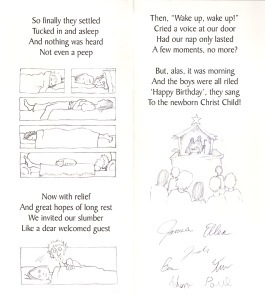 So finally they settled
Tucked in and asleep
And nothing was heard
Not even a peep
Now with relief
And great hopes of long rest
We invited our slumber
Like a dear welcomed guest
Then, "Wake up, wake up!"
Cried a voice at our door
Had our nap only lasted
A few moments, no more?
But, alas, it was morning
And the boys were all riled
'Happy Birthday', they sang
To the newborn Christ Child!
James Ellen